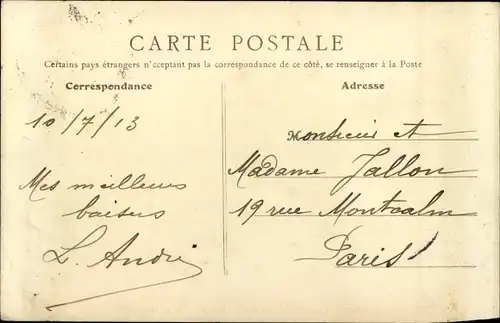 CARTE POSTALE
Certains pays étrangers n'cceptant pas la correspondance de ce côté, se renseigner à la Poste
Correspondance
Adresse
10/7/13
Monsieur et
Madame Jallon
19 rue Montcalm
Paris
Mes meilleurs
baisers
L. André